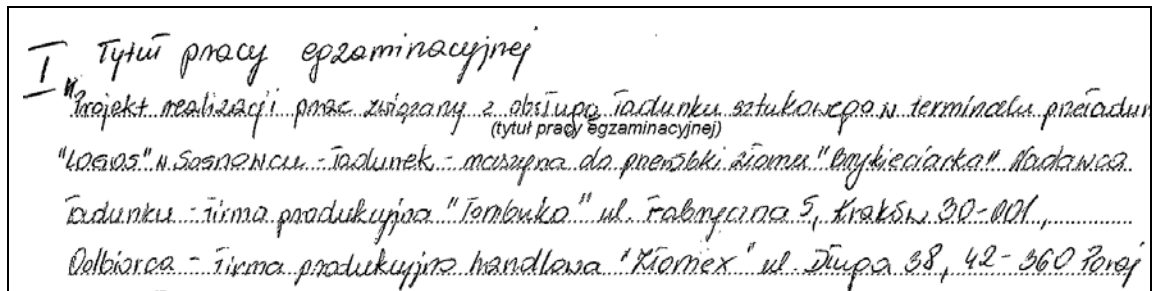 I Tytuł pracy egzaminacyjnej
"Projekt realizacji prac związany z obsługą ładunku sztukowego w terminalu przeładun
(tytuł pracy egzaminacyjnej)
"LOGOS" w Sosnowcu - ładunek - maszyna do przeróbki złomu "Brykieciarka" Nadawca
ładunku - firma produkcyjna "Tombuko" ul. Fabryczna 5, Kraków 30-001,
Odbiorca - firma produkcyjno handlowa "Złomex" ul. Długa 38, 42-360 Poraj